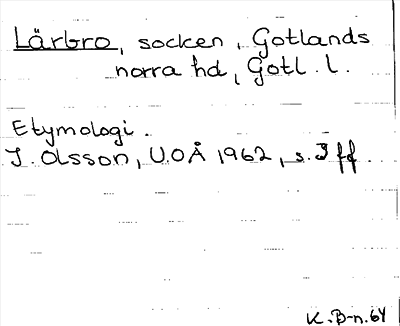 Lärbro, socken, Gotlands
norra hd, Gotl. l.
Etymologi.
I. Olsson, UOÅ 1962, s. 3 ff.
K. B-n. 64